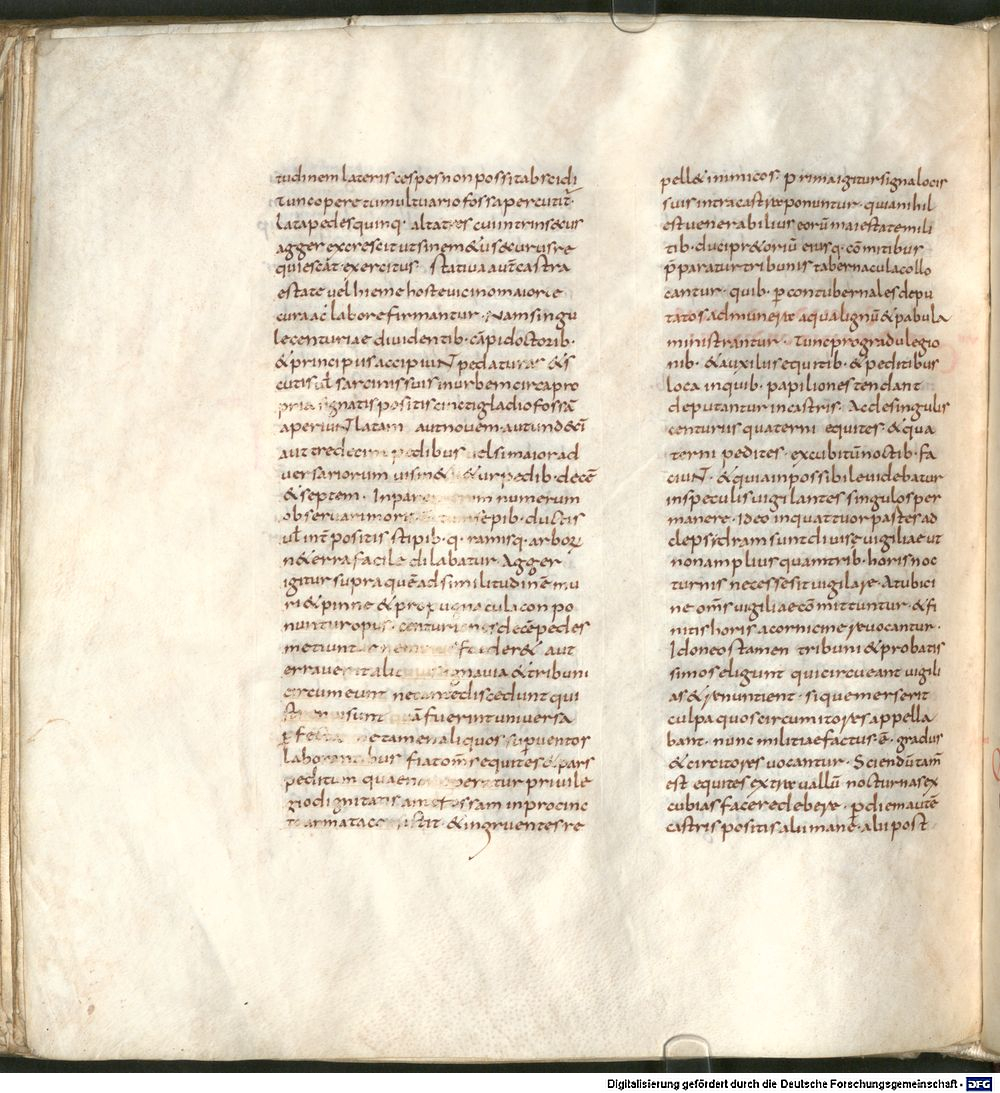 tudinem lateris cespes non possit abscidi
tunc opere tumultuario fossa percutit̄·
lata pedes quinq· alta tres cui intrinsecus
agger excrescit ut sine m&u securus re
quiescat· exercitus· stativa aut̄ castra
estate vel hieme hoste vicino maiore
cura ac labore firmantur· Nam singu
le centuriae dividentib· cāpidoctorib·
& principus accipiuNT pedaturas &s
cutis ul̄ sarcinis suis in urbem circa pro
pria signatis positis cincti gladio fossā
aperiuNT latam aut novem· aut undecī
aut tredecim pedibus vel si maior ad
versariorum vis m& ur pedib· decē
& septem· Inpare numerum
observari moris sepib· ductis
ul̄ int̄ positis stipib· q· ramisq· arborꝝ
n& erra facile dilabatur· Agger
igitur supra quē ad similitudinē mu
ri & pinne & propugnacula conpo
nuntur opus· centuriones decēpedes
metiunt foder& aut
erraverit alicuius ignavia & tribuni
circumeunt nec ante discedunt qui
strenui sunt quā fuerint universa
ꝑfecta ne tamen aliquos supventos
laborantibus fiat om̄s equites & pars
peditum quae non operatur privile
gio dignitatis ante fossam in procinc
tu armata consistit· & ingruentes re
pell& inimicos· prima igitur signa locis
suis intra castra ponuntur· quia nihil
est venerabilius eorū maiestate mili
tib· duci pr&oriū eiusq· cōmitibus
p̄paratur tribunis tabernacula collo
cantur· quib· ꝑ contubernales depu
tatos ad munera aqua lignū & pabula
ministrantur· tunc pro gradu legio
nib· & auxilus equitib· & peditibus
loca in quib· papiliones tendant
deputantur in castris· Ac de singulis
centurus quaterni equites· & qua
terni pedites· excubitū noctib· fa
ciuNT· & quia inpossibile videbatur
in speculis vigilantes singulos per
manere· ideo in quattuor partes ad
clepsidram sunt divise vigiliae ut
non amplius quam trib· horis noc
turnis necesse sit vigilare· A tubici
ne om̄s vigiliae cōmittuntur· & fi
nitis horis a cornicine revocantur·
Idoneos tamen tribuni & probatis
simos eligunt qui circueant vigili
as & renuntient· si quem erserit
culpa quos circumitores appella
bant· nunc militiae factus· ē· gradus
& circitores vocantur· Sciendū tam̄
est equites extra vallū nocturnas ex
cubias facere debere· ꝑ diem autē
castris positis alii mane· alii post